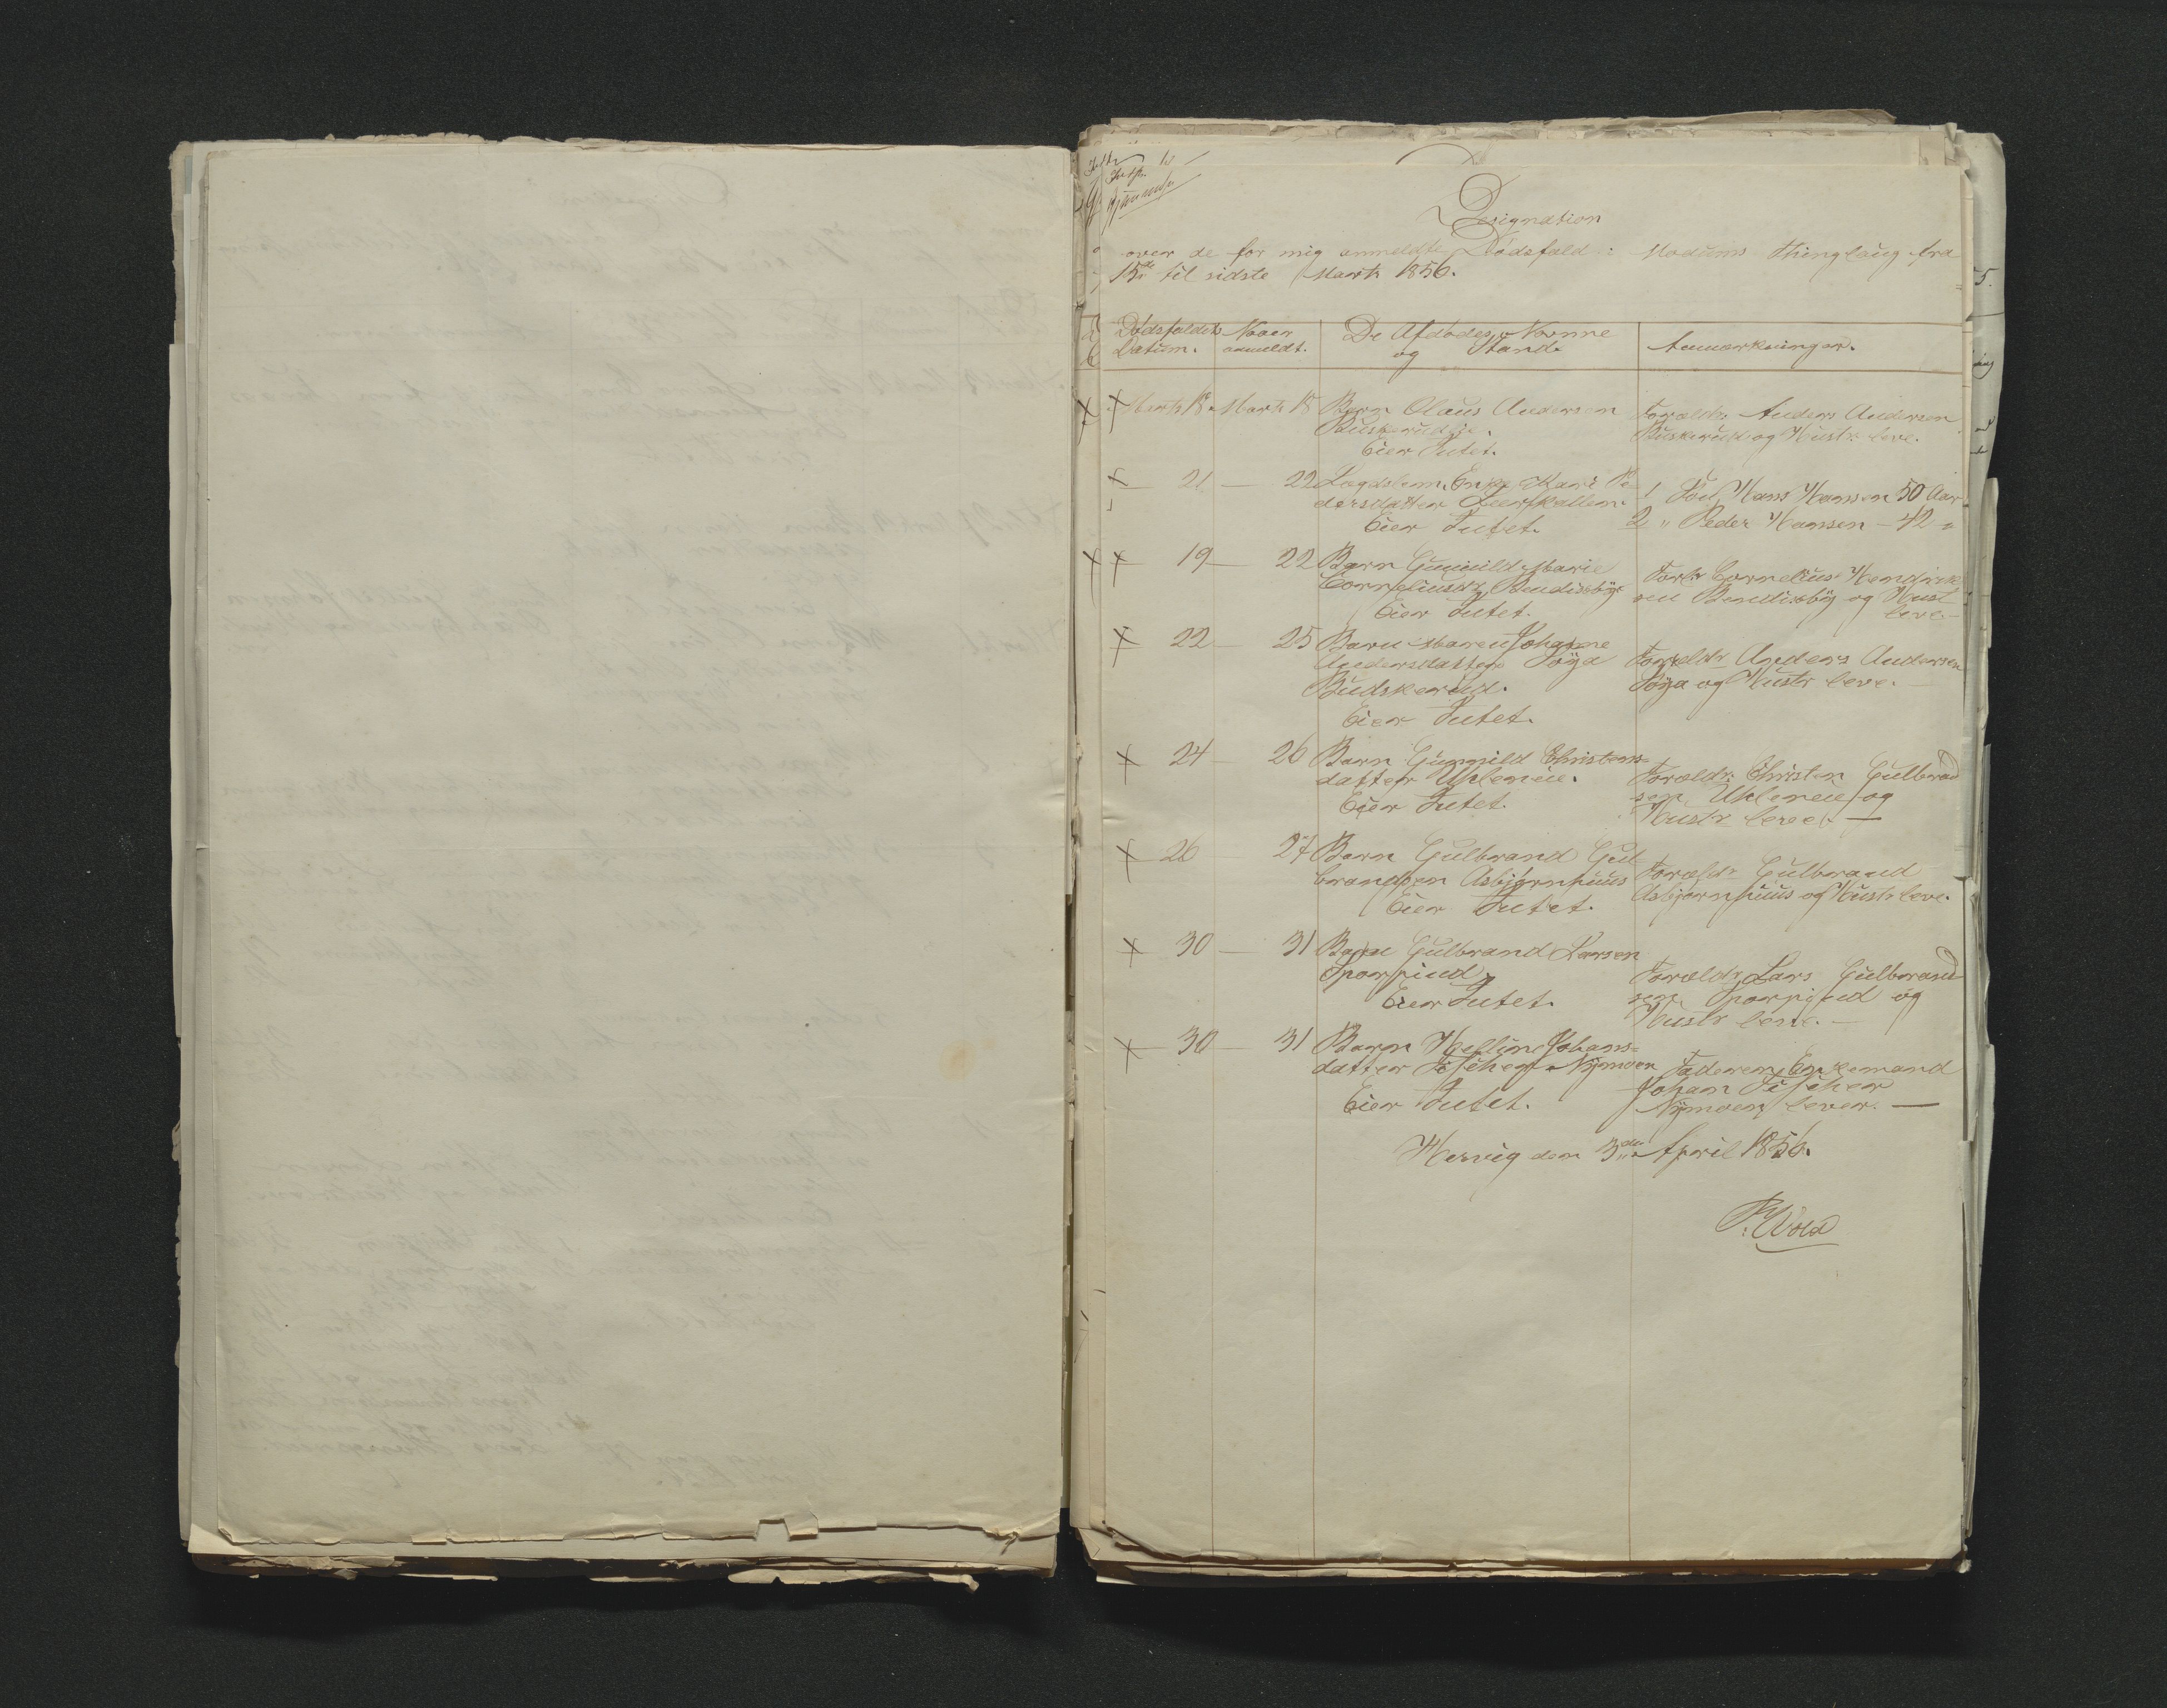 Designation
over de for mig anmeldte Dødsfald i Modums Thinglaug fra
15de til sidste Marts 1856.
Dødsfaldets Datum.
Naar anmeldt.
De Afdødes Navne og Stand.
Anmærkninger.
Marts 18. Marts 18 Barn Olaus Andersen
Buskerudeje.
Eier Intet.
Foreldr. Anders Andersen
Buskerud og Hustr. leve.
21 — 22 Lægdslem, Enke Kari Pe
dersdatter
Eier Intet.
1 Søn, Hans Hansen 50 Aar
2 " Peder Hansen — 42 "
19 — 22 Barn Gunnild Marie
Corneliusdr Bendixby
Eier Intet.
Forl. Cornelius Hendrik
sen Bendixby og Hust
leve
22 — 25 Barn Maren Johanne
Andersdatter Søya
Budskerud.
Eier Intet.
Foreldr Anders Andersen
Søya og Hustr leve.
24 — 26 Barn Gunnild Christens=
datter Uhleneie.
Eier Intet.
Foreldr: Christen Gulbrand
sen Uhleneie og
Hustr leve. —
26 — 27 Barn Gulbrand Gul
brandsen Asbjørnhuus
Eier Intet.
Foreldr Gulbrand
Asbjørnhuus og Hustr leve.
30 — 31 Barn Gulbrand Larsen
Sporpind
Eier Intet.
Foreldr Lars Gulbrand
sen Sporpind og
Hustr leve. —
30 — 31 Barn Helline Johans=
datter Fischer Nymoen
Eier Intet.
Faderen Enkemand
Johan Fischer
Nymoen lever. —
Hervig den 3die April 1856.
P. Wold